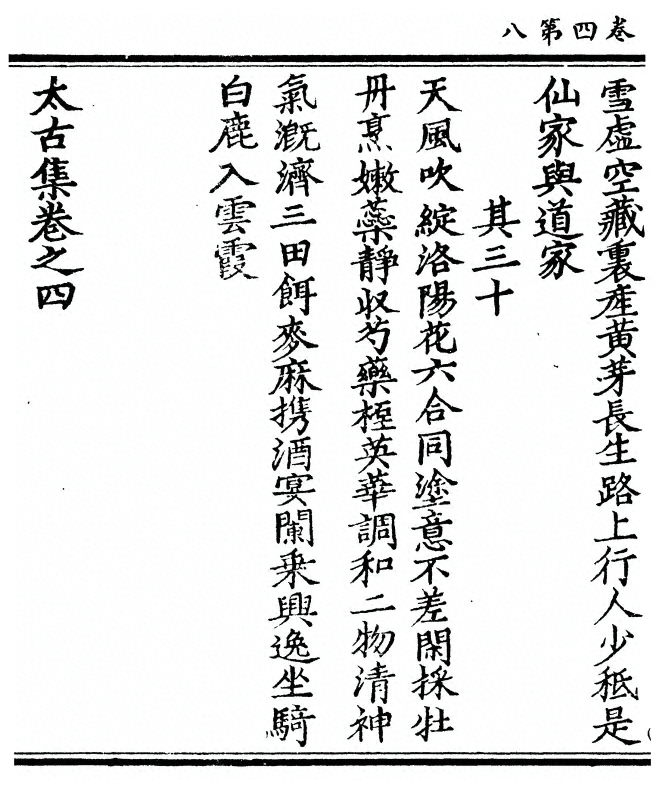 卷四第八
雪虛空藏裏産黄芽長生路上行人少秪是
仙家與道家
其三十
天風吹綻洛陽花六合同塗意不差閑採牡
丹烹嫩蘂靜收芍藥椏英華調和二物清神
氣溉濟三田餌麥麻携酒宴闌乗興逸坐騎
白鹿入雲霞
太古集卷之四